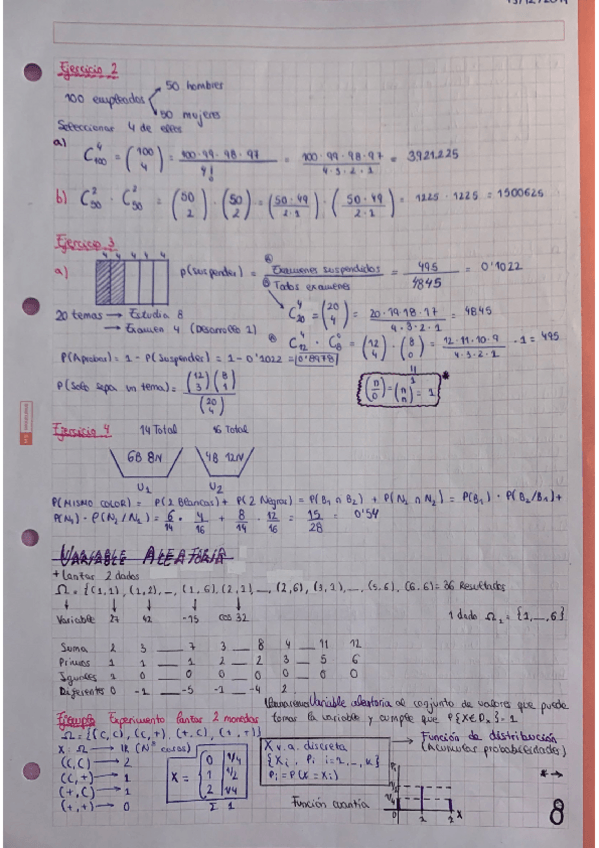 13/12/2019
Ejercicio 2
50 hombres
100 empleados
50 mujeres
Seleccionar 4 de ellos
a)
C⁴₁₀₀ = (100 4) = 100·99·98·97 / 4! = 100·99·98·97 / 4·3·2·1 = 3921225
b) C²₅₀ · C²₅₀ = (50 2) · (50 2) = (50·49 / 2·1) · (50·49 / 2·1) = 1225 · 1225 = 1500625
Ejercicio 3
4 4 4 4 4
a) P(suspender) = Examenes suspendidos / Todos examenes = 495 / 4845 = 0'1022
20 temas → Estudia 8
→ Examen 4 (Desarrollo 1)
C⁴₂₀ = (20 4) = 20·19·18·17 / 4·3·2·1 = 4845
C⁴₁₂ · C⁰₈ = (12 4) · (8 0) = 12·11·10·9 / 4·3·2·1 · 1 = 495
P(Aprobar) = 1 - P(Suspender) = 1 - 0'1022 = 0'8978
P(Solo sepa un tema) = (12 3)(8 1) / (20 4)
(n 0) = (n n) = 1 *
Ejercicio 4
14 Total
16 Total
6B 8N
4B 12N
U1
U2
P(MISMO COLOR) = P(2 Blancas) + P(2 Negras) = P(B₁ ∩ B₂) + P(N₁ ∩ N₂) = P(B₁) · P(B₂/B₁) +
P(N₁) · P(N₂/N₁) = 6/14 · 4/16 + 8/14 · 12/16 = 15/28 = 0'54
VARIABLE ALEATORIA
+ Lanzar 2 dados
Ω = {(1,1), (1,2), _, (1,6), (2,1), _, (2,6), (3,1), _, (5,6), (6,6) = 36 Resultados
Variable 27 42 -15 cos 32
1 dado Ω₁ = {1,_,6}
Suma 2 3 _ 7 3 _ 8 4 _ 11 12
Primos 1 1 _ 1 2 _ 2 3 _ 5 6
Iguales 1 0 _ 0 0 _ 0 0 _ 0 0
Diferentes 0 -1 _ -5 -1 _ -4 2
Variable aleatoria al conjunto de valores que puede
Ejemplo Experimento lanzar 2 monedas
tomar la variable y cumple que P{X∈Dx} = 1
Ω = {(C,C), (C,+), (+,C), (+,+)}
X: Ω → IR (Nº caras)
(C,C) → 2
(C,+) → 1
(+,C) → 1
(+,+) → 0
X = 0 1/4
1 1/2
2 1/4
Σ 1
X v.a. discreta
{Xi, Pi i=1,_,k}
Pi = P(X = Xi)
→ Función de distribución
(Acumular probabilidades)
Función cuantía
Pi
1/2
1/4
0 1 2 X
* →
8